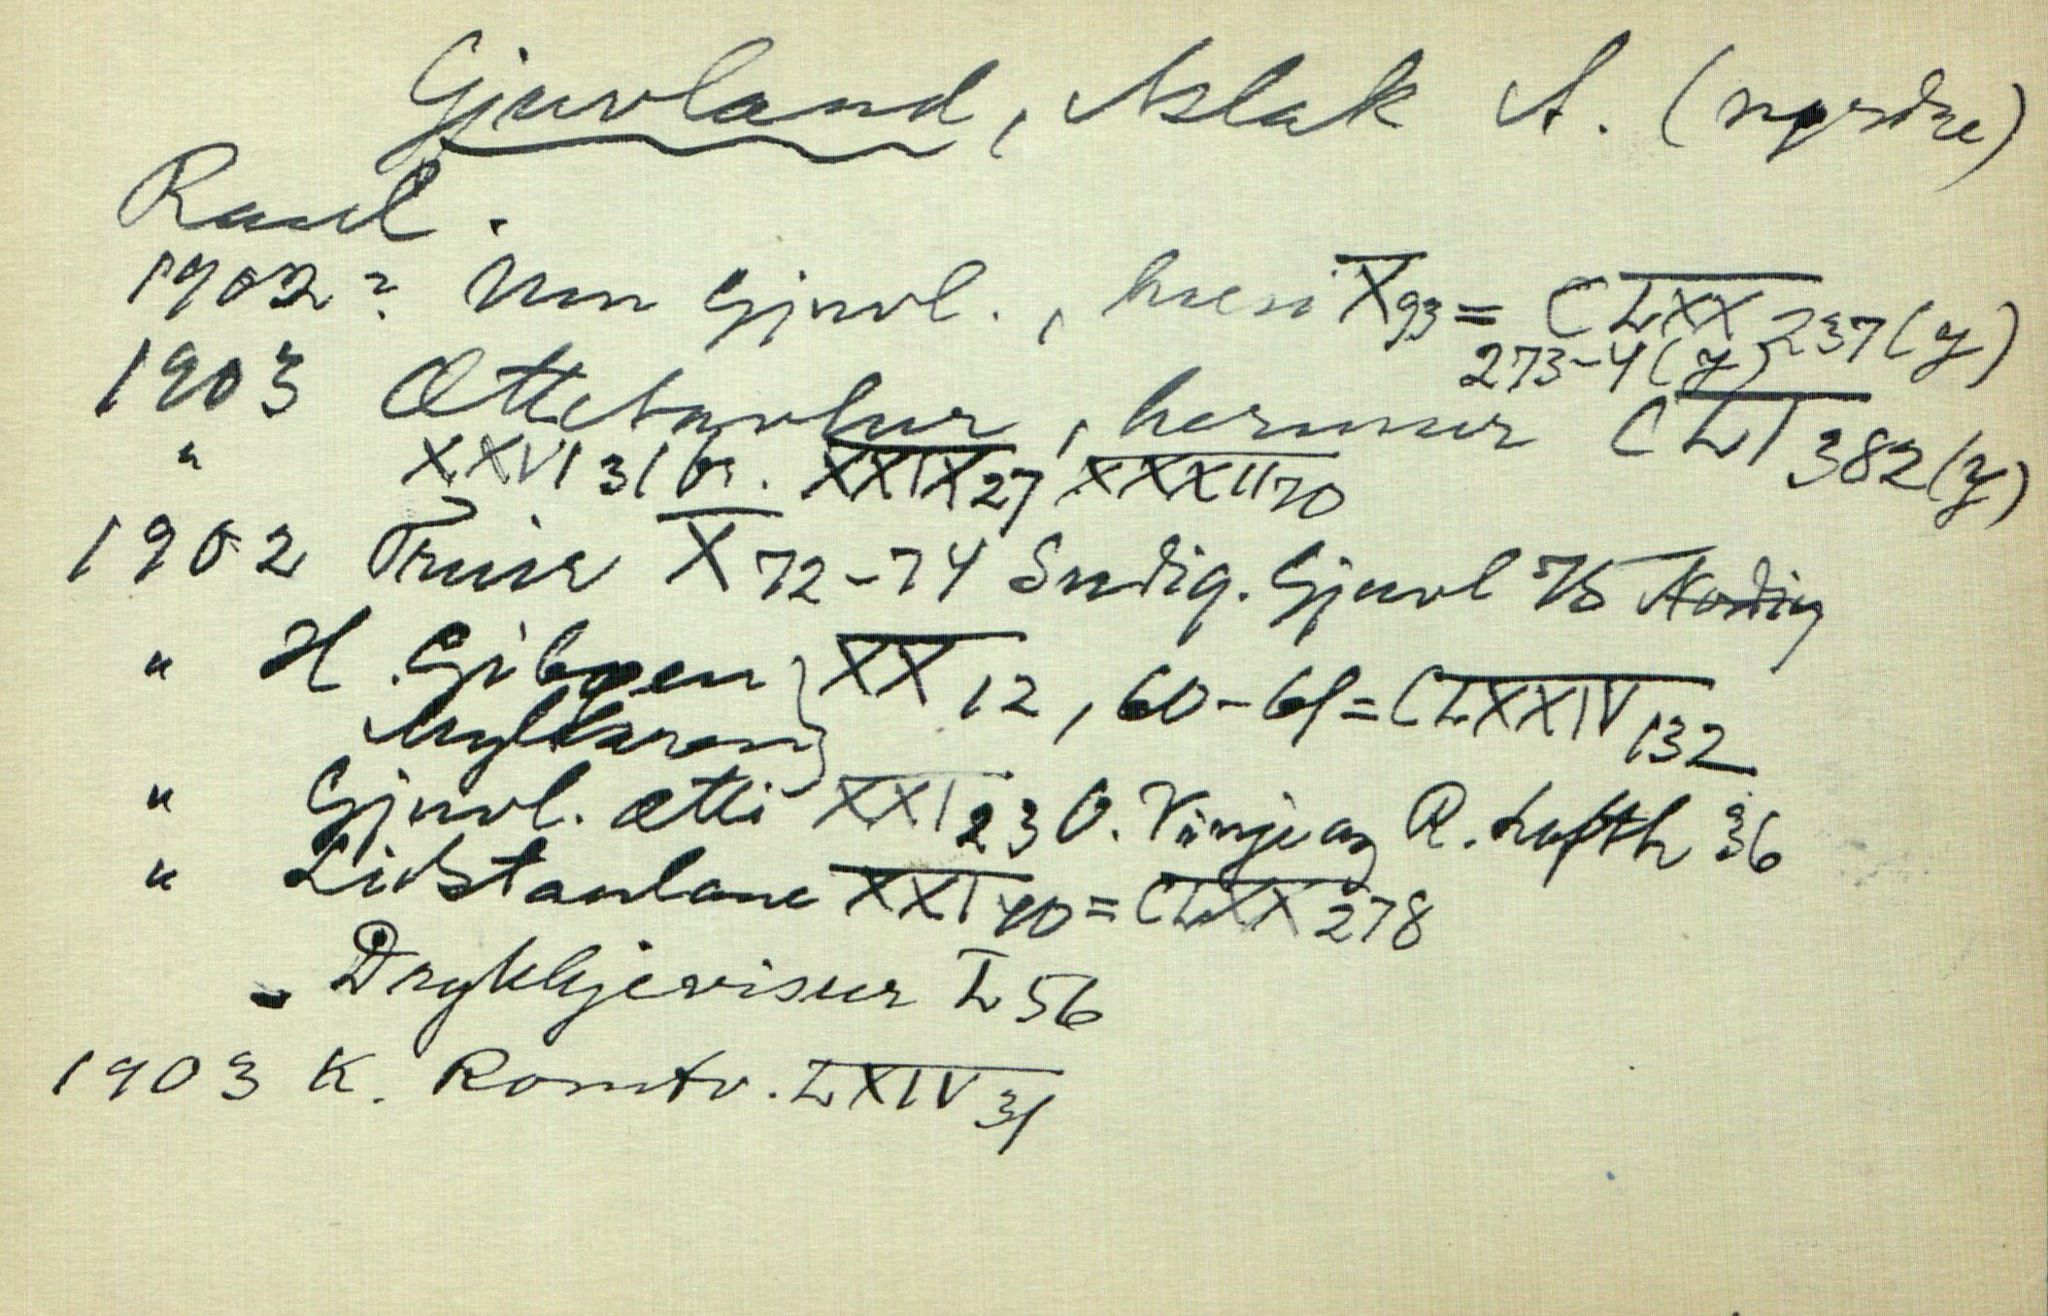 Gjuvland, Aslak A. (nørdre)
Raul.
1902? Um Gjuvl., hersi X 93 = CLXX 237 (y)
273-4 (y)
1903 Ættetavlur, hermur CLI 382 (y)
" XXVI 31 br. XXIX 27 XXXII 70
1902 Truir X 72-74 Sudig. Gjuvl 75
" H. Gibøen XX 12, 60-61 = CLXXIV 132
Myllaren
" Gjuvl. ætti XXI 23 O. Vinje og R. Lofth 36
" Lidstaulane XXI 40 = CLXX 278
" Drykkjevisur L 56
1903 K. Romtv. LXIV 31